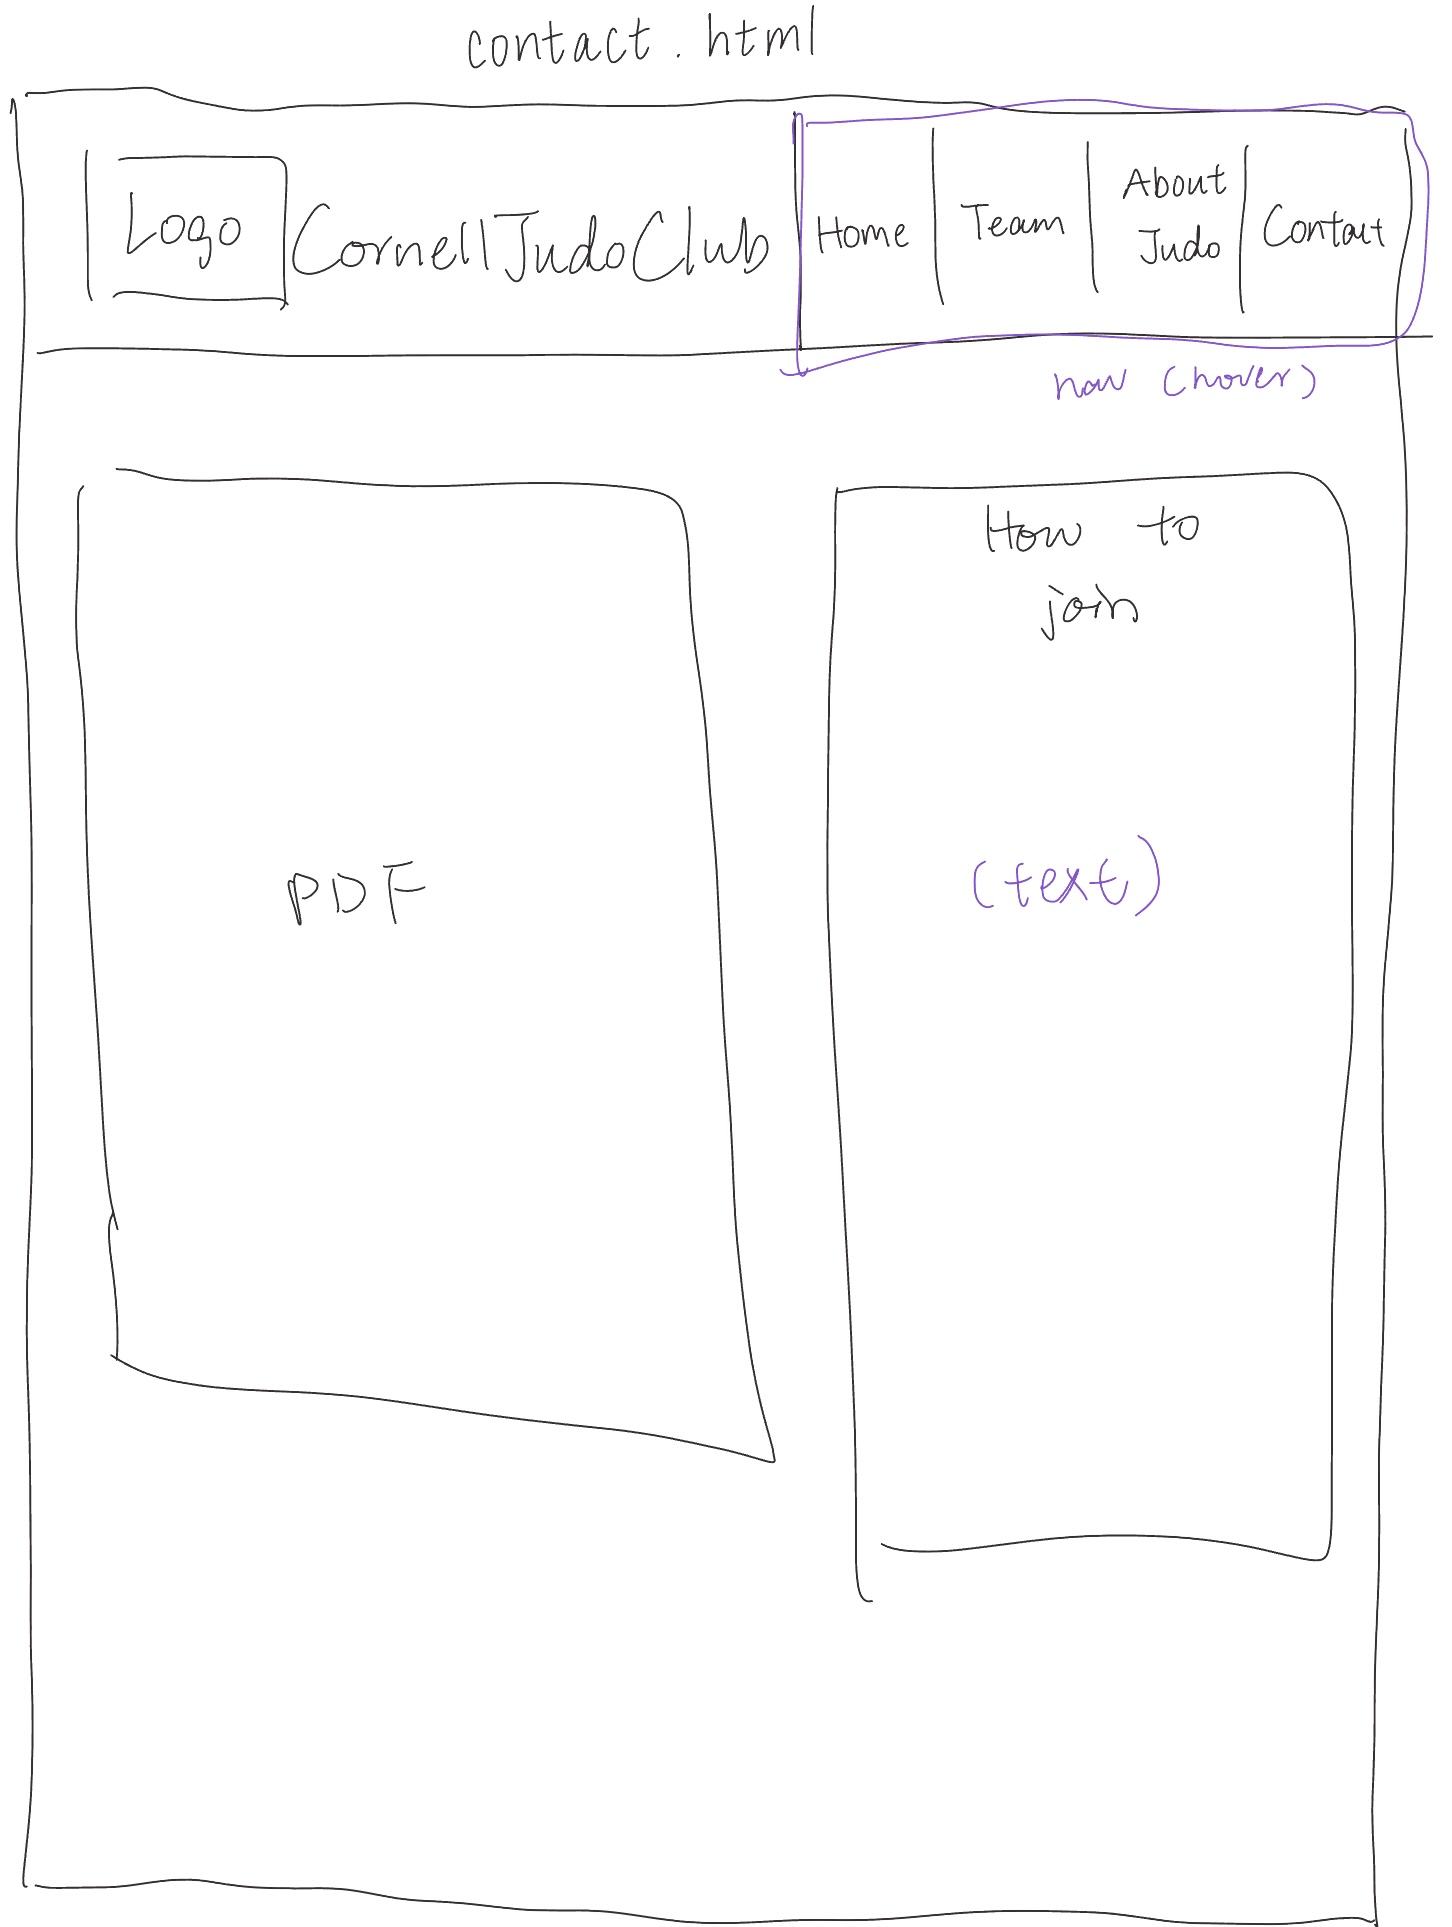 contact.html
Logo
CornellJudoClub
Home
Team
About
Judo
Contact
nav (hover)
How to
join
PDF
(text)